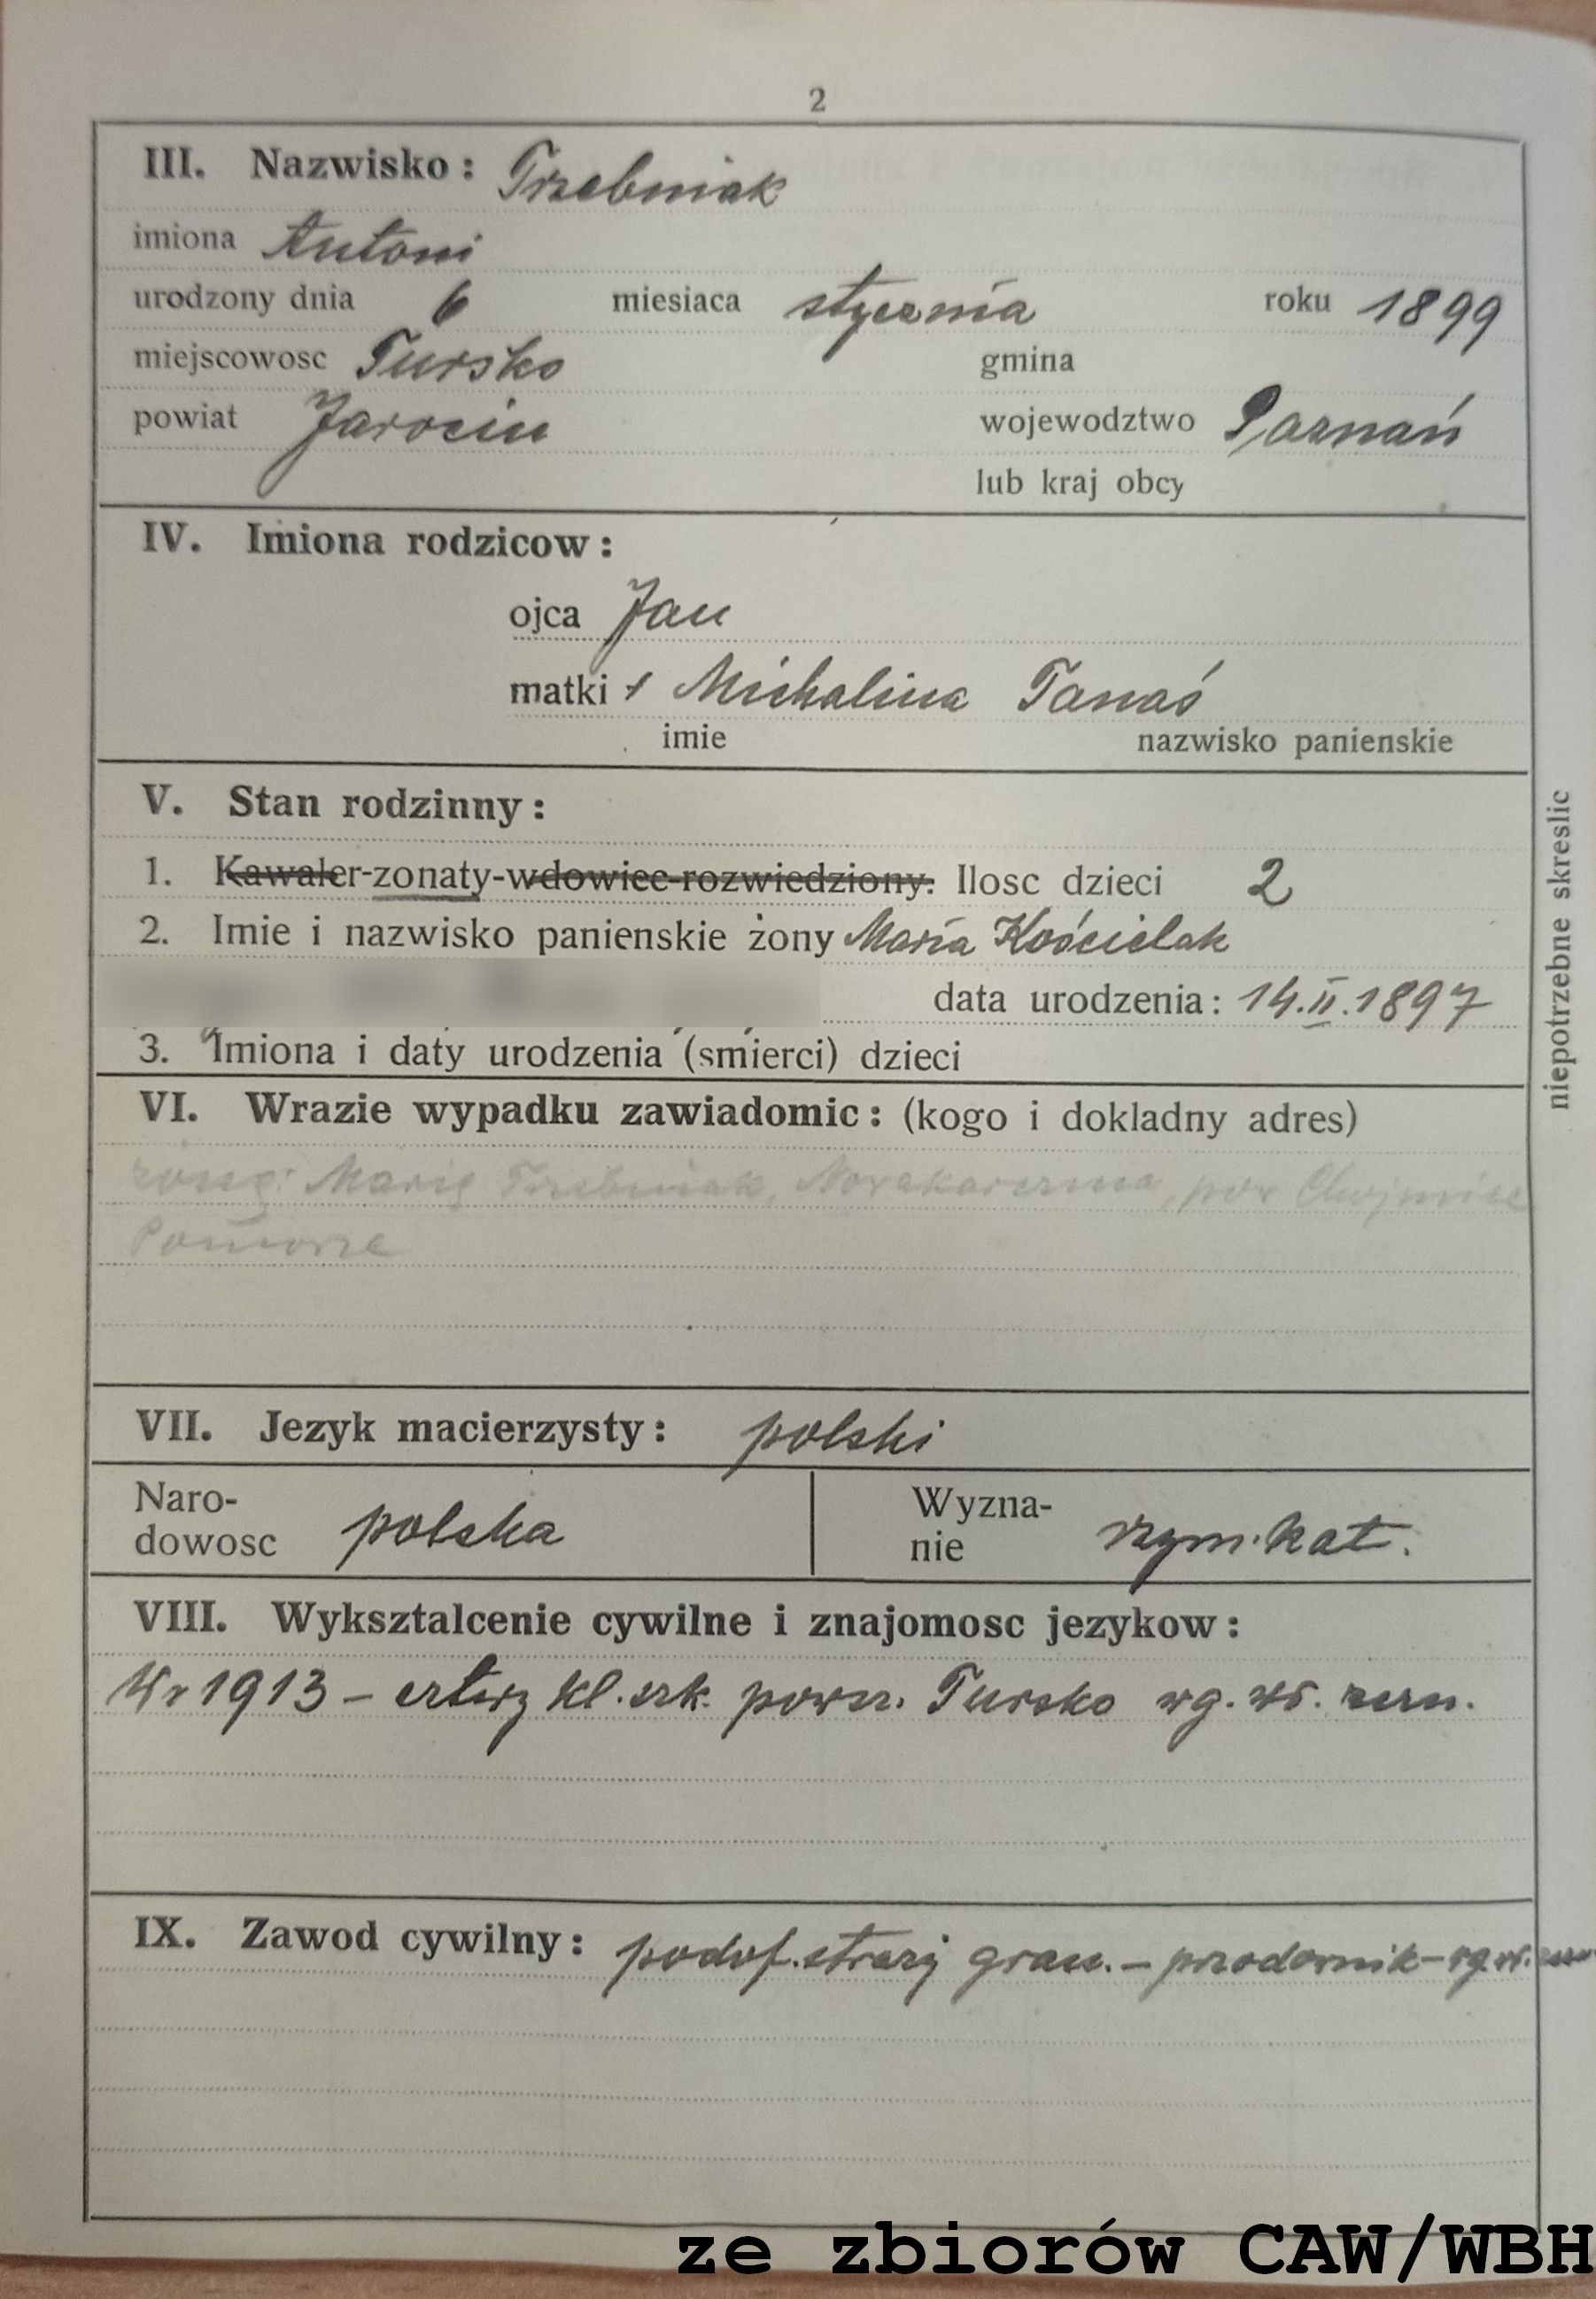 2
III. Nazwisko: Trzebniak
imiona Antoni
urodzony dnia 6 miesiaca stycznia roku 1899
miejscowosc Tursko gmina
powiat Jarocin wojewodztwo Poznań
lub kraj obcy
IV. Imiona rodzicow:
ojca Jan
matki Michalina Tanaś
imie nazwisko panienskie
V. Stan rodzinny:
1. Kawaler-zonaty-wdowiec-rozwiedziony. Ilosc dzieci 2
2. Imie i nazwisko panienskie żony Maria Kościelak
data urodzenia: 14.II.1897
3. Imiona i daty urodzenia (smierci) dzieci
niepotrzebne skreslic
VI. Wrazie wypadku zawiadomic: (kogo i dokladny adres)
żonę: Marię Trzebniak, pow Chojnice
Pomorze
VII. Jezyk macierzysty: polski
Naro-
dowosc polska
Wyzna-
nie rzym.kat.
VIII. Wyksztalcenie cywilne i znajomosc jezykow:
W r 1913 – cztery kl. szk. powsz. Tursko wg. wł. zezn.
IX. Zawod cywilny: podof. straży gran. – przodownik – wg. wł. zezn
ze zbiorów CAW/WBH